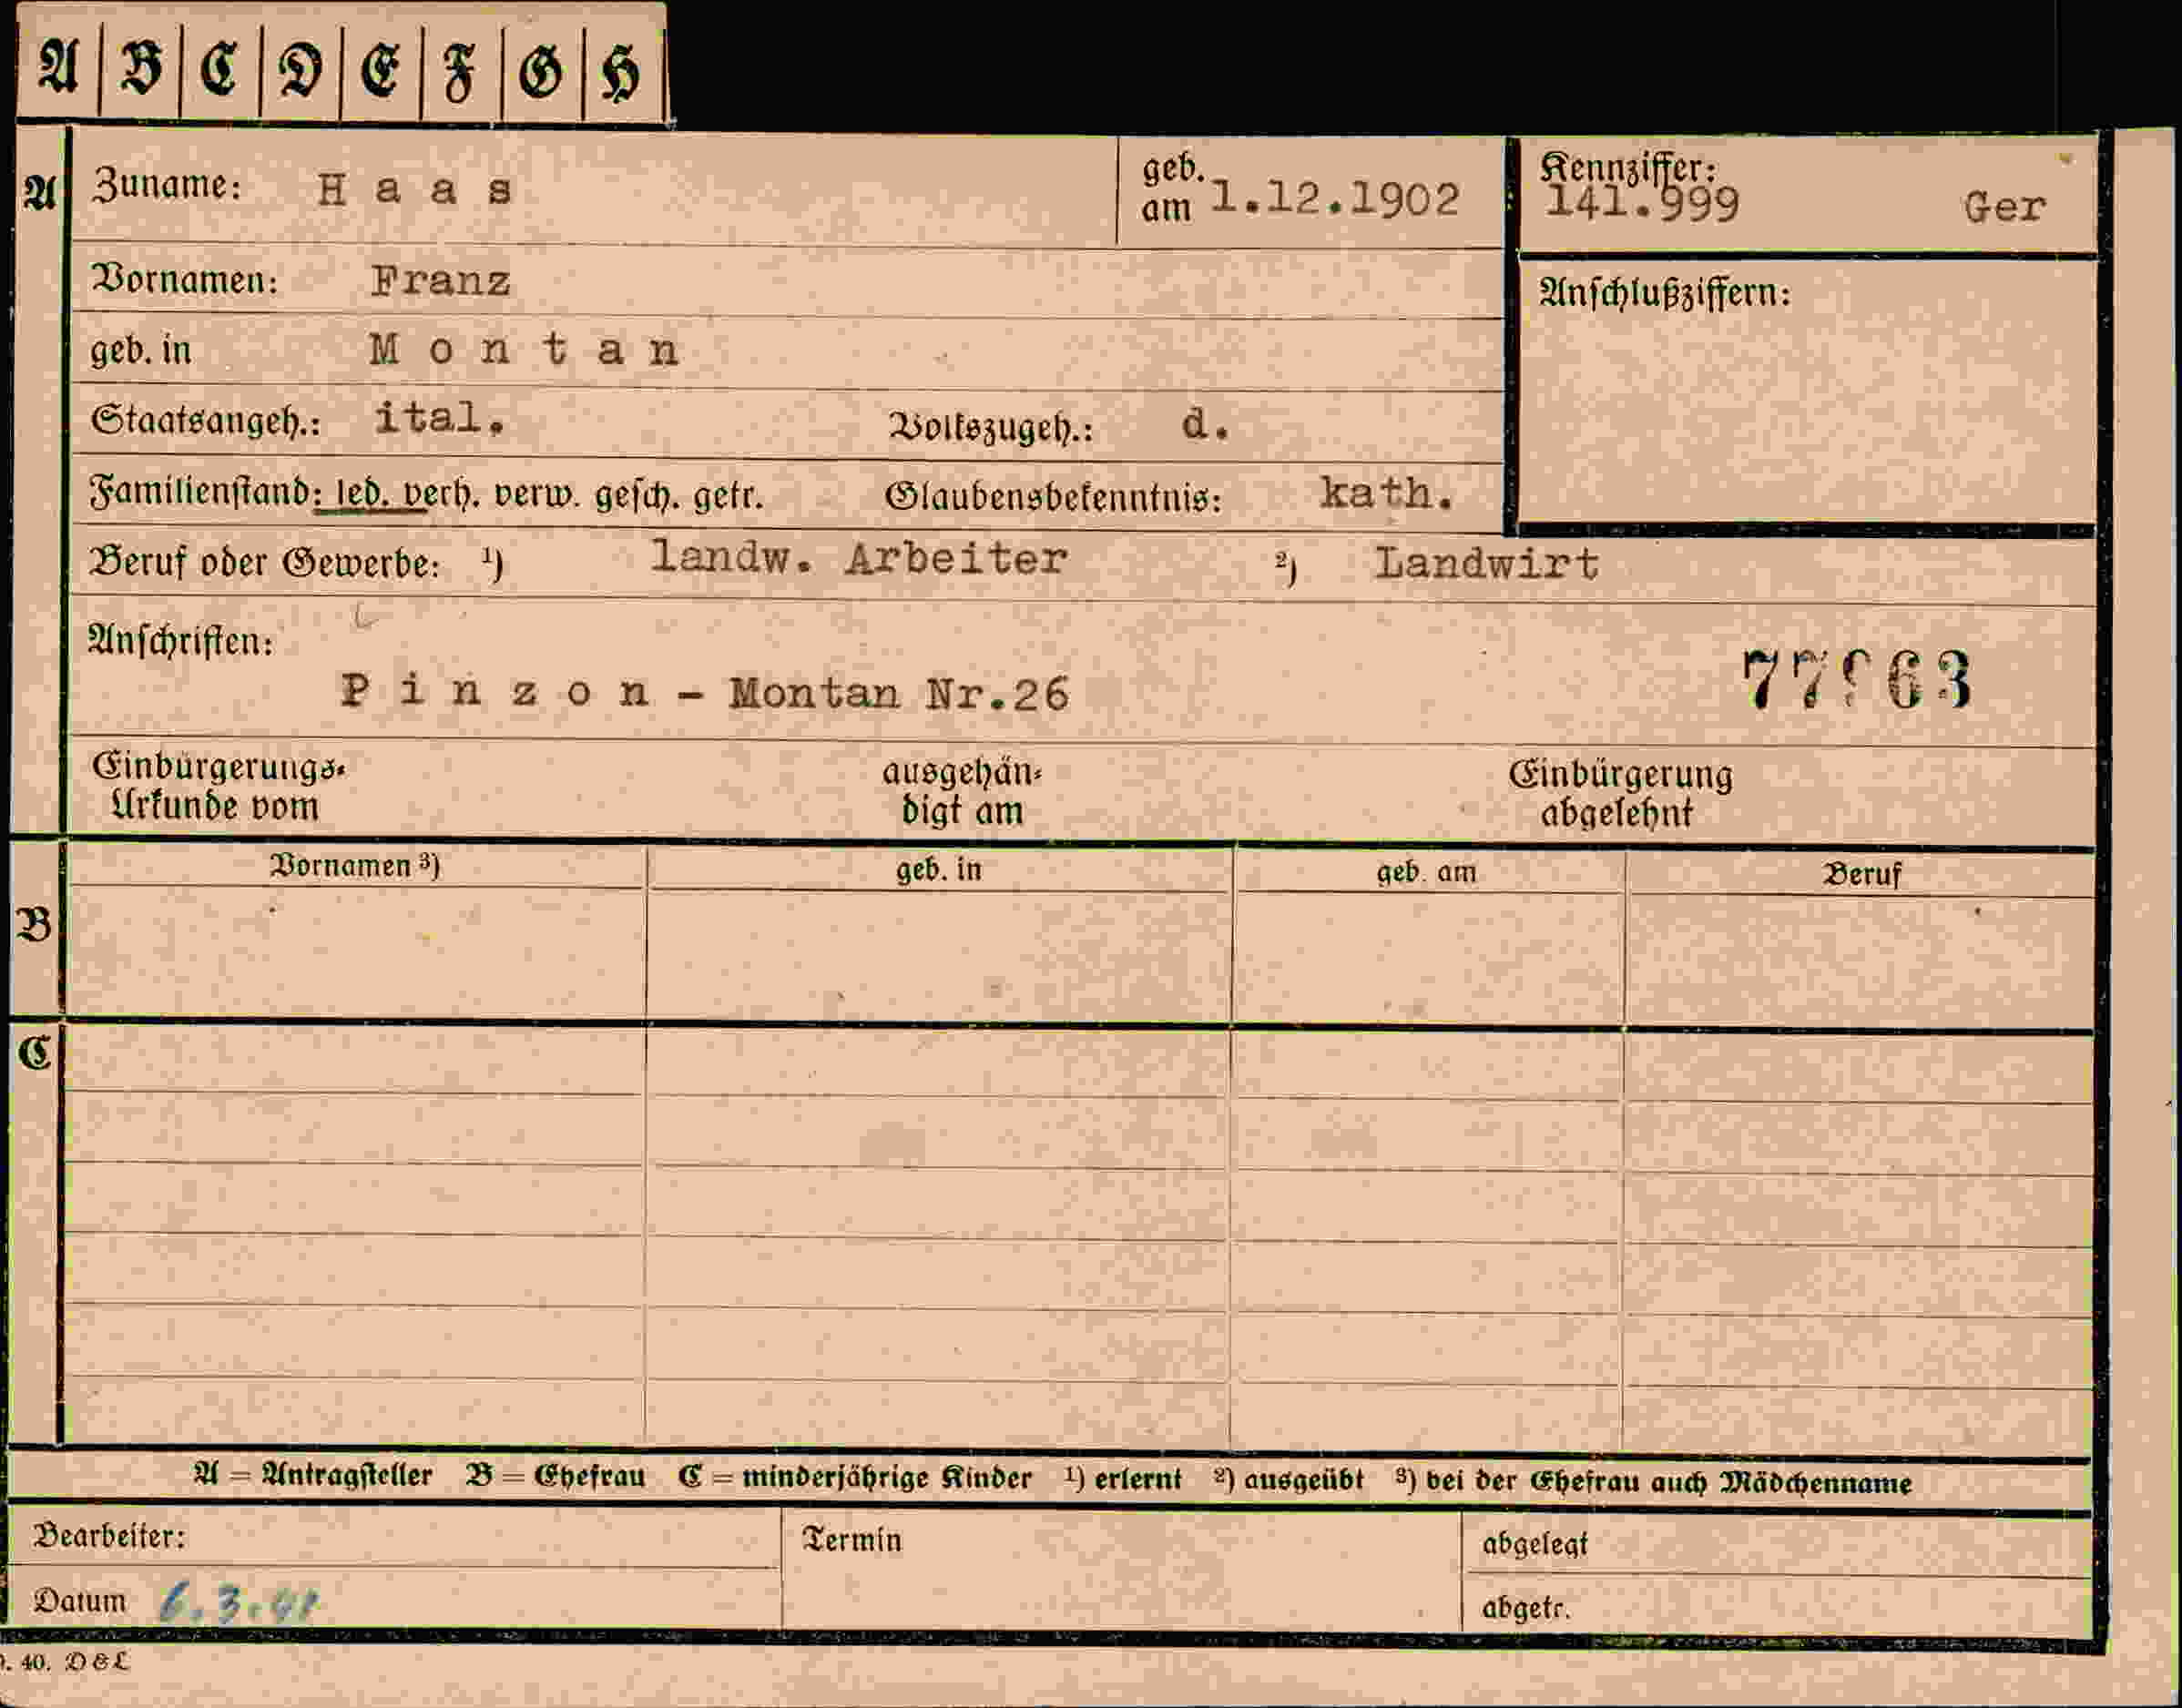 A B C D E F G H
A Zuname: Haas geb. am 1.12.1902 Kennziffer: 141.999 Ger
Vornamen: Franz Anschlußziffern:
geb. in Montan
Staatsangeh.: ital. Volkszugeh.: d.
Familienstand: led. verh. verw. gesch. getr. Glaubensbekenntnis: kath.
Beruf oder Gewerbe: ¹) landw. Arbeiter ²) Landwirt
Anschriften:
Pinzon - Montan Nr.26
Einbürgerungs- ausgehän- Einbürgerung
Urkunde vom digt am abgelehnt
Vornamen ³) geb. in geb. am Beruf
B
C
A = Antragsteller B = Ehefrau C = minderjährige Kinder ¹) erlernt ²) ausgeübt ³) bei der Ehefrau auch Mädchenname
Bearbeiter: Termin abgelegt
Datum 6.3.41 abgetr.
40. D & L